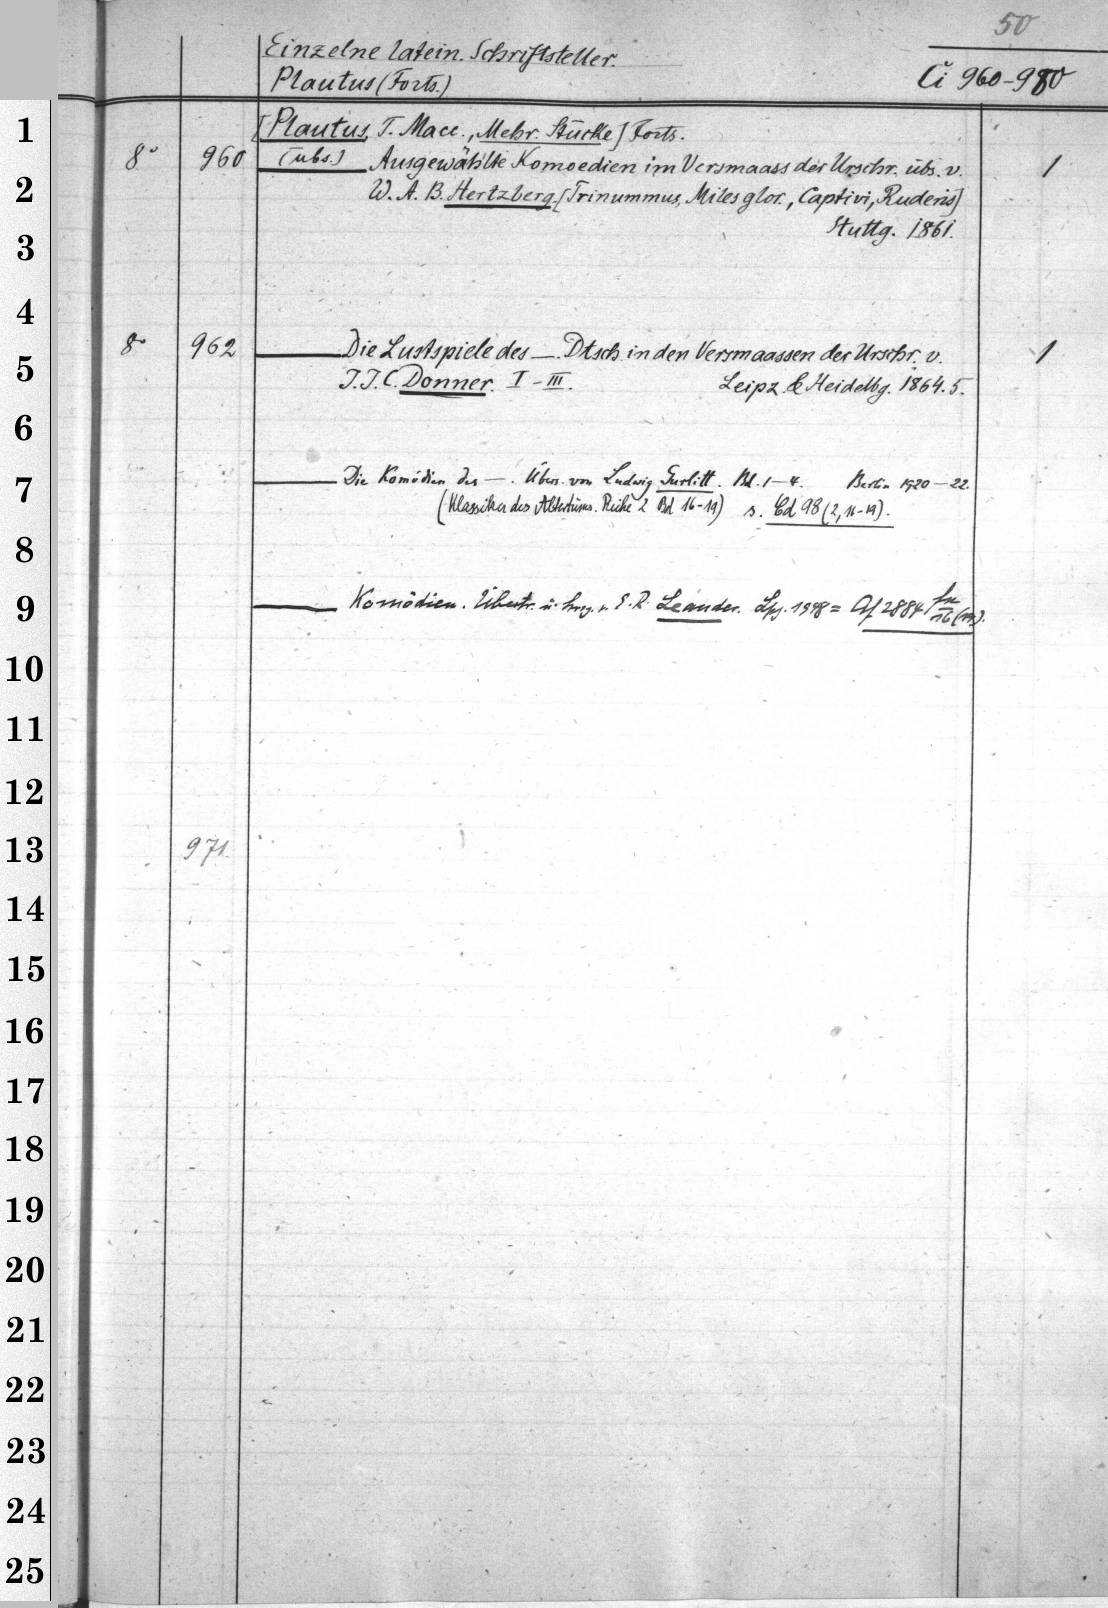 50
Einzelne latein. Schriftsteller.
Plautus (Forts.)
Či 960-980
1
[Plautus, T. Macc., Mehr. Stücke] Forts.
8° 960 (übs.) Ausgewählte Komoedien im Versmaass der Urschr. übs. v. 1
2
W. A. B. Hertzberg. [Trinummus, Miles glor., Captivi, Rudens]
3
Stuttg. 1861.
4
8° 962 Die Lustspiele des —. Dtsch. in den Versmaassen der Urschr. v. 1
5
J. J. C. Donner. I - III. Leipz. & Heidelbg. 1864. 5.
6
7
Die Komödien des —. Übers. von Ludwig Gurlitt. Bd. 1-4. Berlin 1920-22.
(Klassiker des Altertums. Reihe 2 Bd 16-19) s. Cd 98 (2, 16-19).
8
9
Komödien. Übertr. u. hrsg. v. E. R. Leander. Lpz. 1948 = Af 2884
10
11
12
13
971.
14
15
16
17
18
19
20
21
22
23
24
25